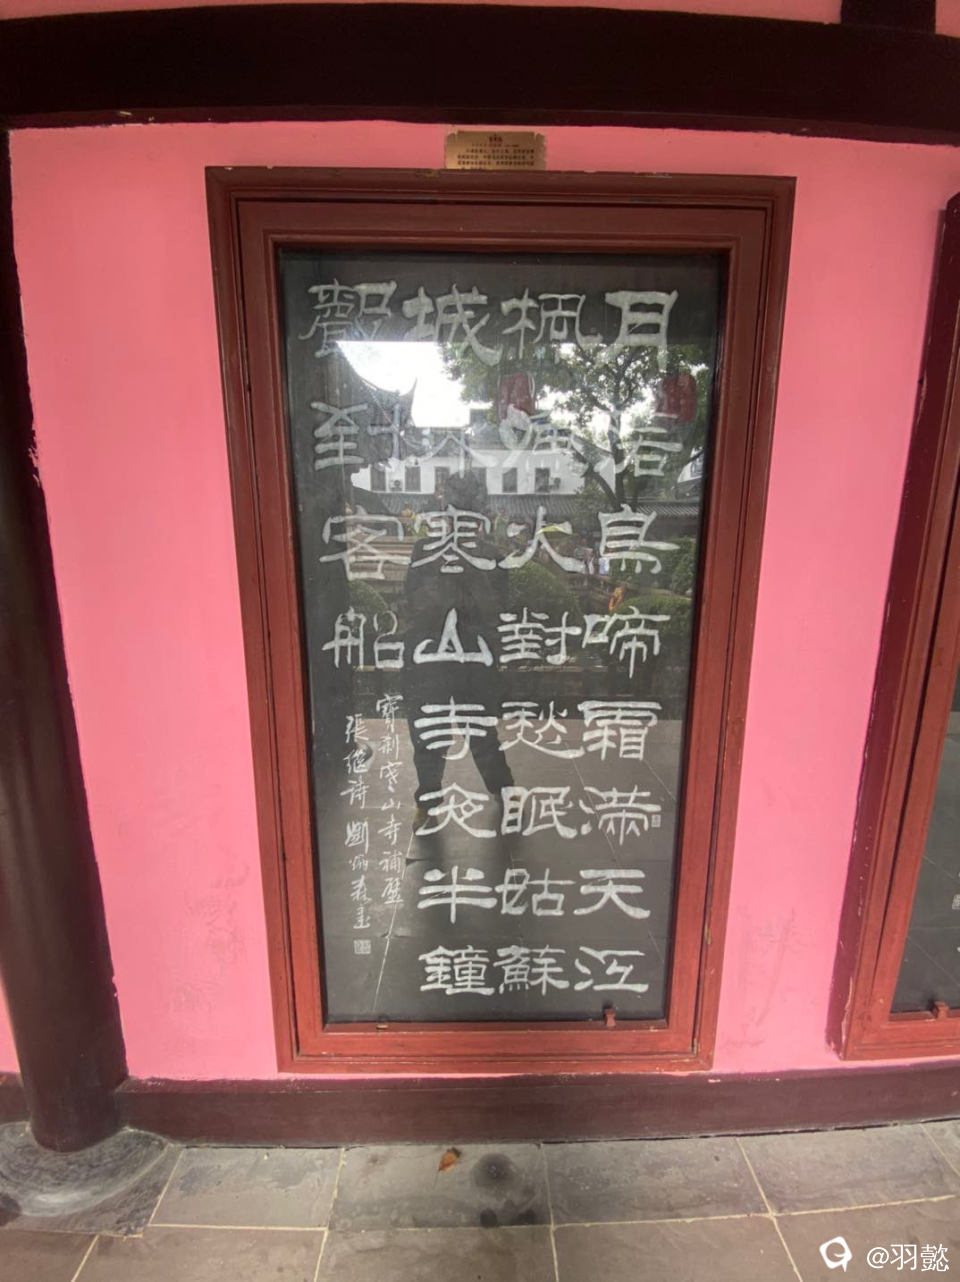 月落烏啼霜滿天江
楓漁火對愁眠姑蘇
城外寒山寺夜半鐘
聲到客船
寶刹寒山寺補壁
張繼詩 劉炳森書
@羽懿